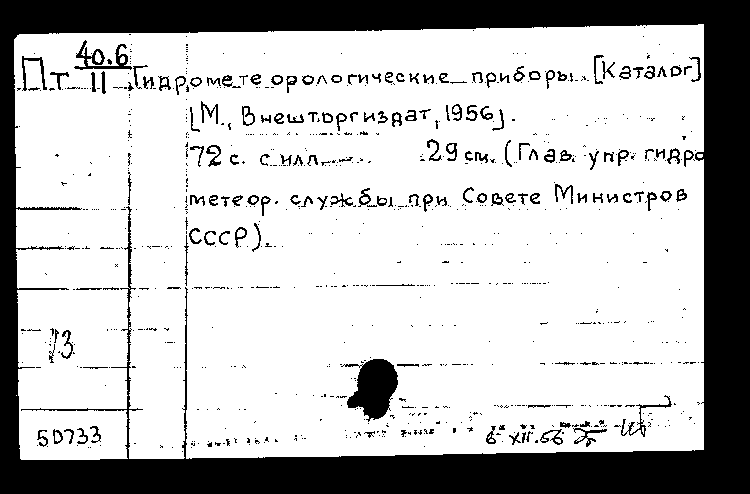 40.6
Пт II Гидрометеорологические приборы. [Каталог]
[М., Внешторгиздат, 1956].
72 с. с илл. 29 см. (Глав. упр. гидро
метеор. службы при Совете Министров
СССР).
13
50733
6 XII.56